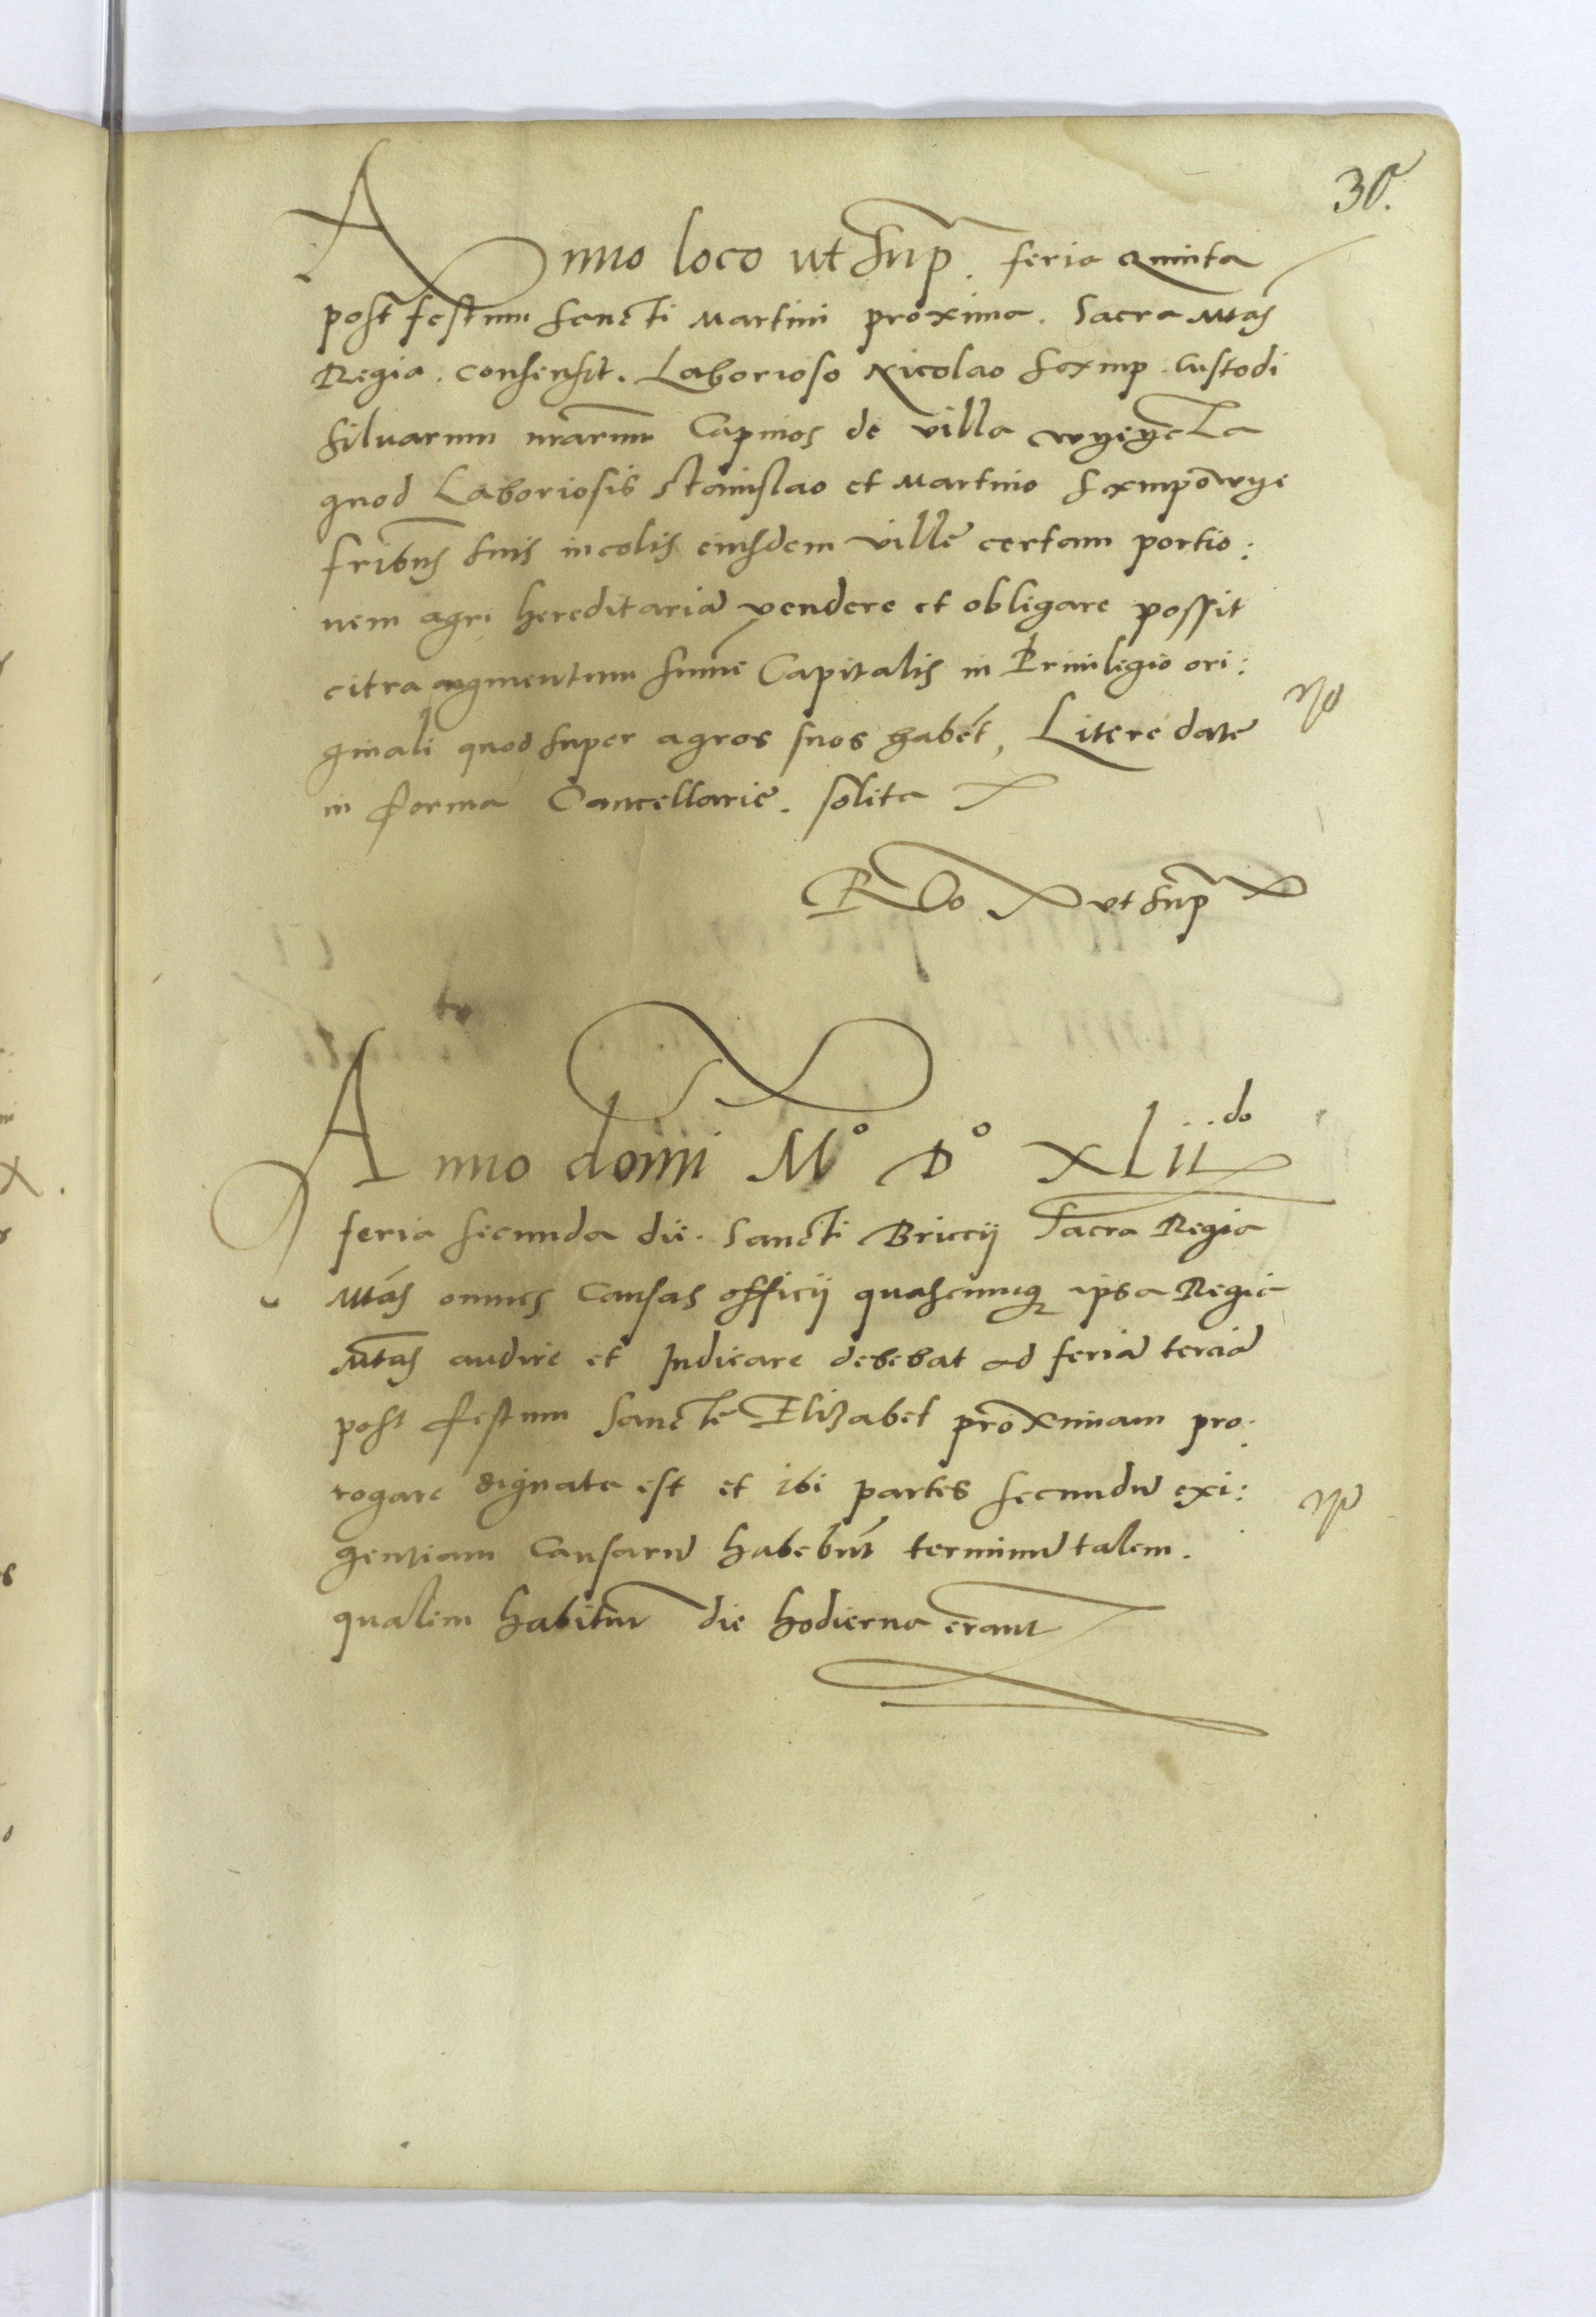 30.
Anno loco ut sup. feria Quinta
post festum sancti Martini proxima. Sacra Mtas
Regia. consensit. Laborioso Nicolao Sczmp. Custodi
siluarum nrarum Capinos de villa
quod Laboriosis Stanislao et Martino
fribus suis incolis eiusdem ville certam portio:
nem agri hereditariā vendere et obligare possit
citra augmentum sumē Capitalis in Priuilegio ori:
ginali quod super agros suos habēt, Litere date
in forma Cancellarie. solita
ut sup
Anno domi M° D° XLii do
feria secunda die. Sancti Briccij Sacra Regia
Mtas omnes Causas officij quascunq ipsa Regia
Mtas audire et Iudicare debebat ad feriā terciā
post festum Sancte Elizabet proximam pro:
rogare dignata est et ibi partes secundū exi:
gentiam Causarū habebūt terminū talem.
qualem habiturē die hodierna erant